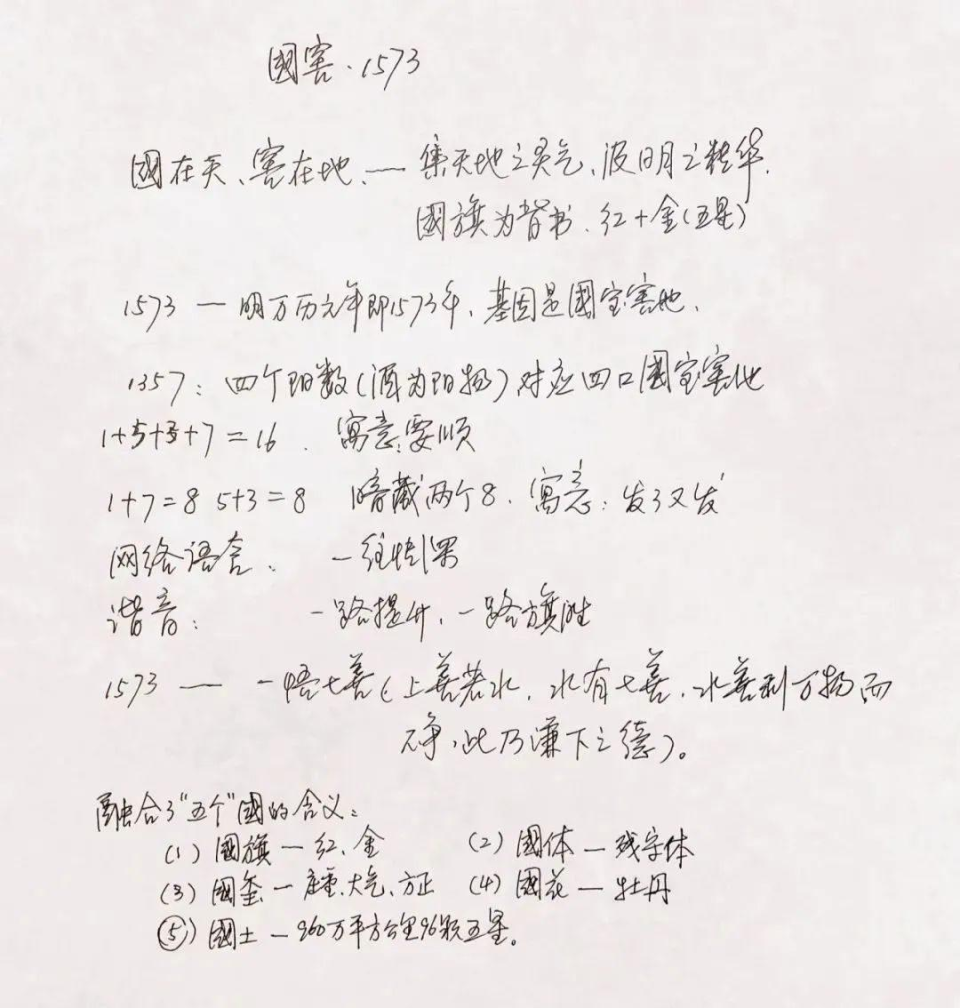 國窖·1573
國在天、窖在地、— 集天地之灵气、汲日月之精华.
國旗为背书、红+金(五星)
1573 — 明万历元年即1573年, 基因是國宝窖池.
1357: 四个阳数(酒为阳物)对应四口國宝窖池
1+5+3+7=16. 寓意:要顺
1+7=8 5+3=8 暗藏两个8. 寓意: 发了又发
网络语言. 一往情深
谐音: 一路提升, 一路旗胜
1573 — 一悟七善(上善若水, 水有七善, 水善利万物而
不争, 此乃谦下之德)。
融合了"五个"國的含义:
(1) 國旗—红、金 (2) 國体—残字体
(3) 國玺—庄重、大气、方正 (4) 國花—牡丹
(5) 國土—960万平方公里96颗五星。